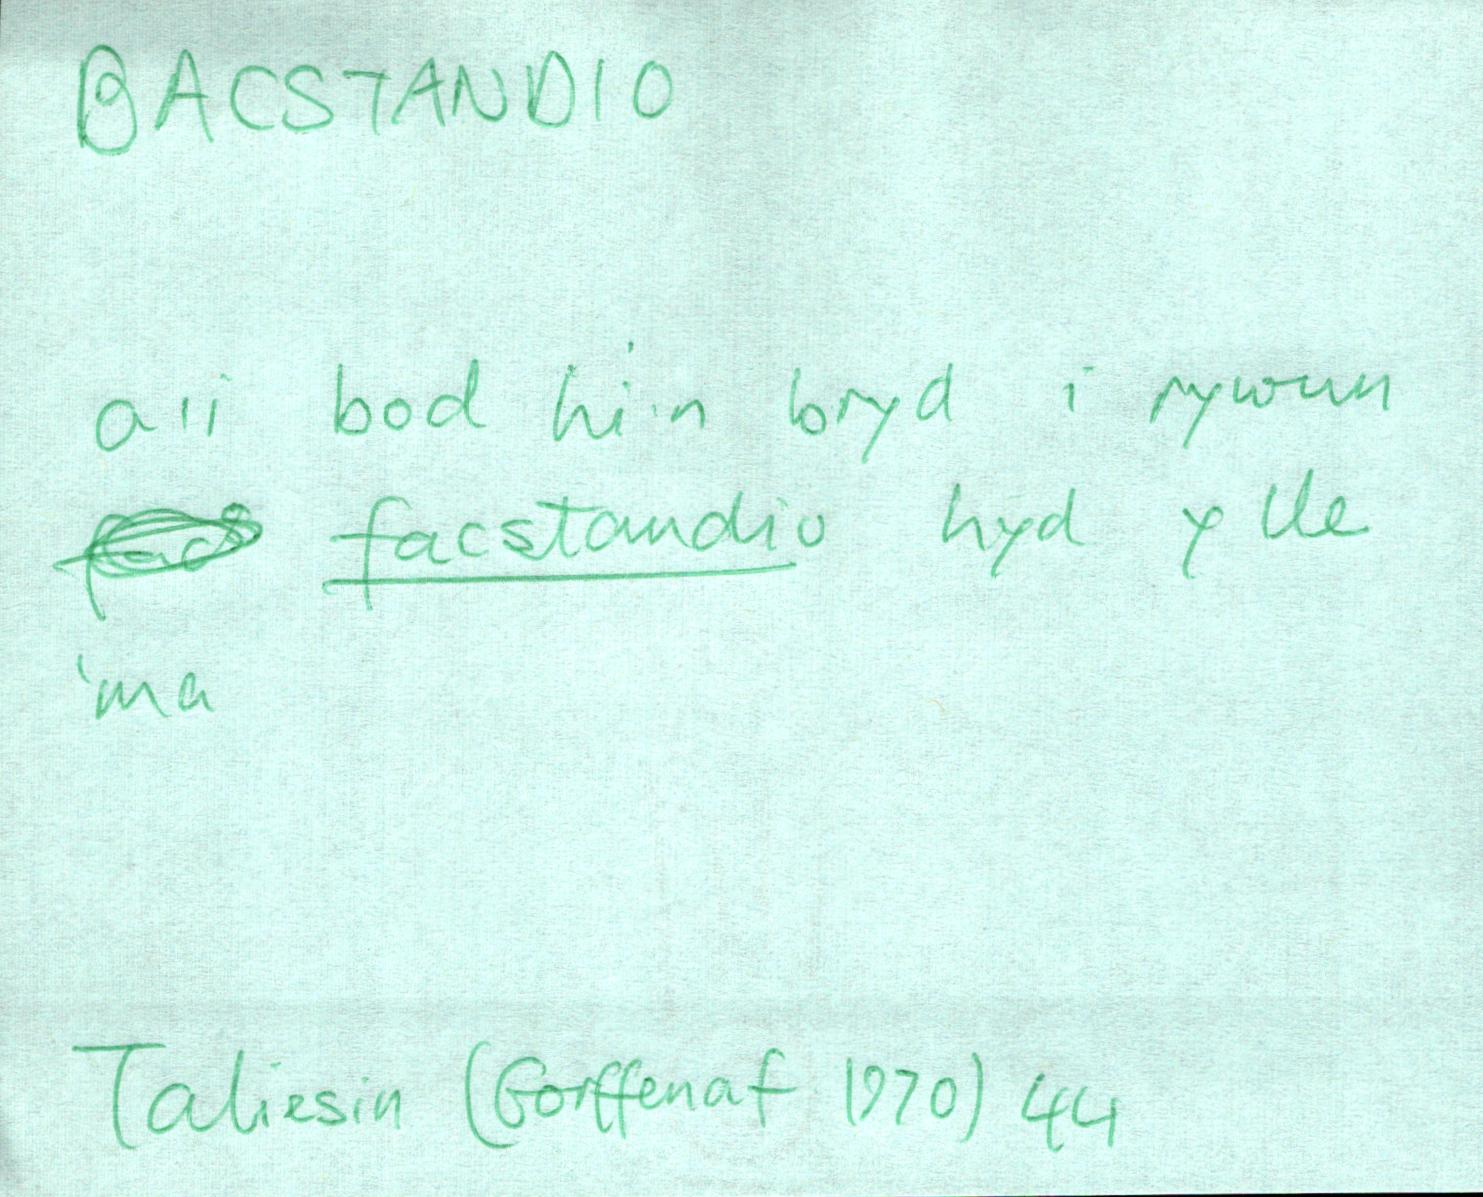 BACSTANDIO
a'i bod hi'n bryd i rywun
facstandio hyd y lle
'ma
Taliesin (Gorffenaf 1970) 44